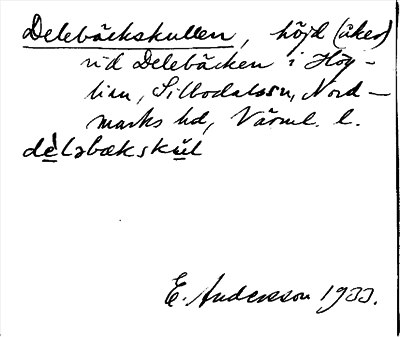 Delebäckskullen, höjd (åker)
vid Delebäcken i Hög-
lian, Silbodals sn, Nord-
marks hd, Värml. l.
dèləbækskŭl
E. Andersson 1933.